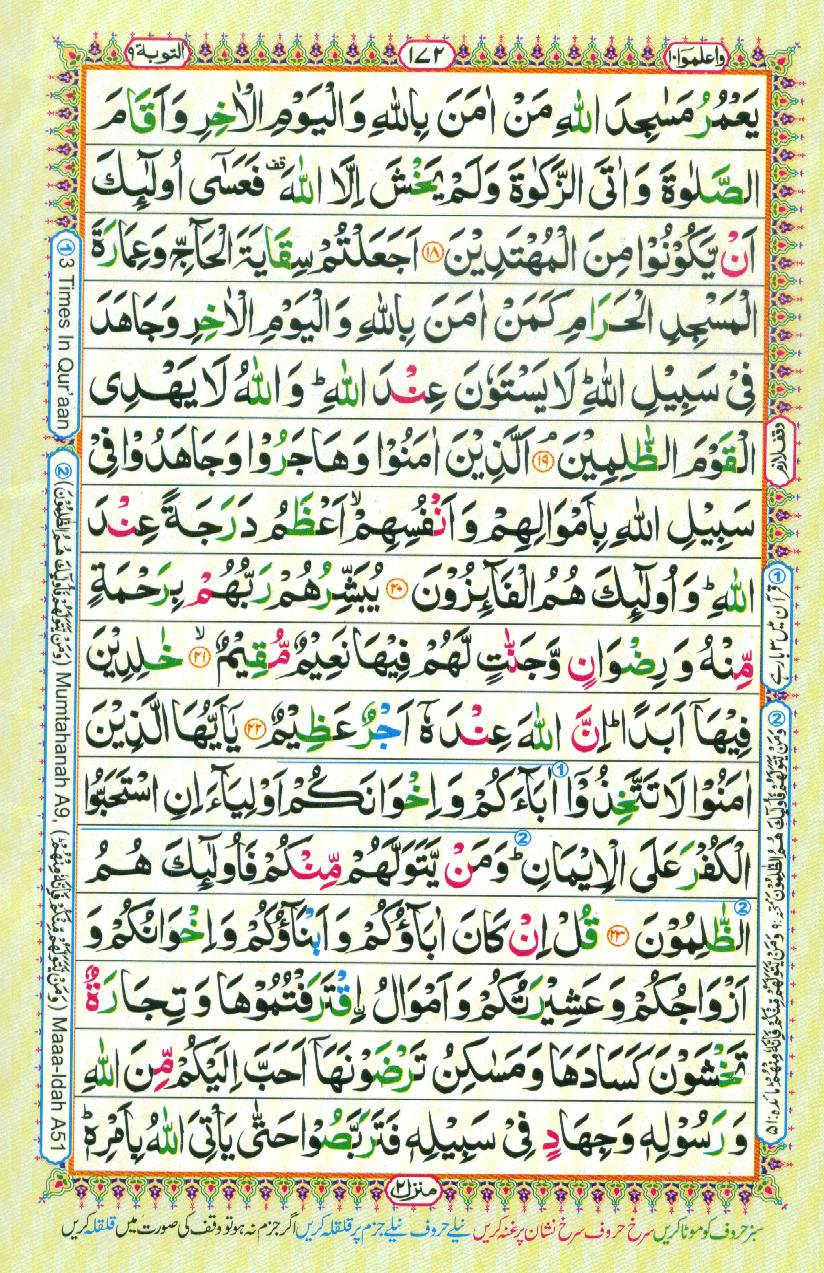 واعلموا ۱۰
۱۷۲
التوبة ۹
يَعْمُرُ مَسٰجِدَ اللّٰهِ مَنْ اٰمَنَ بِاللّٰهِ وَالْيَوْمِ الْاٰخِرِ وَاَقَامَ
الصَّلٰوةَ وَاٰتَى الزَّكٰوةَ وَلَمْ يَخْشَ اِلَّا اللّٰهَ قف فَعَسٰٓى اُولٰٓئِكَ
اَنْ يَّكُوْنُوْا مِنَ الْمُهْتَدِيْنَ ۱۸ اَجَعَلْتُمْ سِقَايَةَ الْحَآجِّ وَعِمَارَةَ
الْمَسْجِدِ الْحَرَامِ كَمَنْ اٰمَنَ بِاللّٰهِ وَالْيَوْمِ الْاٰخِرِ وَجَاهَدَ
فِيْ سَبِيْلِ اللّٰهِ ؕ لَا يَسْتَوٗنَ عِنْدَ اللّٰهِ ؕ وَاللّٰهُ لَا يَهْدِى
الْقَوْمَ الظّٰلِمِيْنَ ۱۹ ۘ اَلَّذِيْنَ اٰمَنُوْا وَهَاجَرُوْا وَجَاهَدُوْا فِيْ
سَبِيْلِ اللّٰهِ بِاَمْوَالِهِمْ وَاَنْفُسِهِمْ ۙ اَعْظَمُ دَرَجَةً عِنْدَ
اللّٰهِ ؕ وَاُولٰٓئِكَ هُمُ الْفَآئِزُوْنَ ۲۰ يُبَشِّرُهُمْ رَبُّهُمْ بِرَحْمَةٍ
مِّنْهُ وَرِضْوَانٍ وَّجَنّٰتٍ لَّهُمْ فِيْهَا نَعِيْمٌ مُّقِيْمٌ ۲۱ ۙ خٰلِدِيْنَ
فِيْهَآ اَبَدًا ؕ اِنَّ اللّٰهَ عِنْدَهٗٓ اَجْرٌ عَظِيْمٌ ۲۲ يٰٓاَيُّهَا الَّذِيْنَ
اٰمَنُوْا لَا تَتَّخِذُوْٓا ① اٰبَآءَكُمْ وَاِخْوَانَكُمْ اَوْلِيَآءَ اِنِ اسْتَحَبُّوا
الْكُفْرَ عَلَى الْاِيْمَانِ ؕ ② وَمَنْ يَّتَوَلَّهُمْ مِّنْكُمْ فَاُولٰٓئِكَ هُمُ
② الظّٰلِمُوْنَ ۲۳ قُلْ اِنْ كَانَ اٰبَآؤُكُمْ وَاَبْنَآؤُكُمْ وَاِخْوَانُكُمْ وَ
اَزْوَاجُكُمْ وَعَشِيْرَتُكُمْ وَاَمْوَالُ اِۨقْتَرَفْتُمُوْهَا وَتِجَارَةٌ
تَخْشَوْنَ كَسَادَهَا وَمَسٰكِنُ تَرْضَوْنَهَآ اَحَبَّ اِلَيْكُمْ مِّنَ اللّٰهِ
وَرَسُوْلِهٖ وَجِهَادٍ فِيْ سَبِيْلِهٖ فَتَرَبَّصُوْا حَتّٰى يَاْتِيَ اللّٰهُ بِاَمْرِهٖ ؕ
منزل ۲
سبز حروف کو موٹا کریں سرخ حروف سرخ نشان پر غنہ کریں نیلے حروف نیلے جزم پر قلقلہ کریں اگر جزم نہ ہو تو وقف کی صورت میں قلقلہ کریں
وقف لازم
① قرآن میں ۳ بارہے
② وَمَنْ يَّتَوَلَّهُمْ فَاُولٰٓئِكَ هُمُ الظّٰلِمُوْنَ ممتحنہ:۹ وَمَنْ يَّتَوَلَّهُمْ مِّنْكُمْ فَاِنَّهٗ مِنْهُمْ مائدہ:۵۱
① 3 Times In Qur'aan
② (وَمَنْ يَّتَوَلَّهُمْ فَاُولٰٓئِكَ هُمُ الظّٰلِمُوْنَ) Mumtahanah A9 (وَمَنْ يَّتَوَلَّهُمْ مِّنْكُمْ فَاِنَّهٗ مِنْهُمْ) Maaa-Idah A51